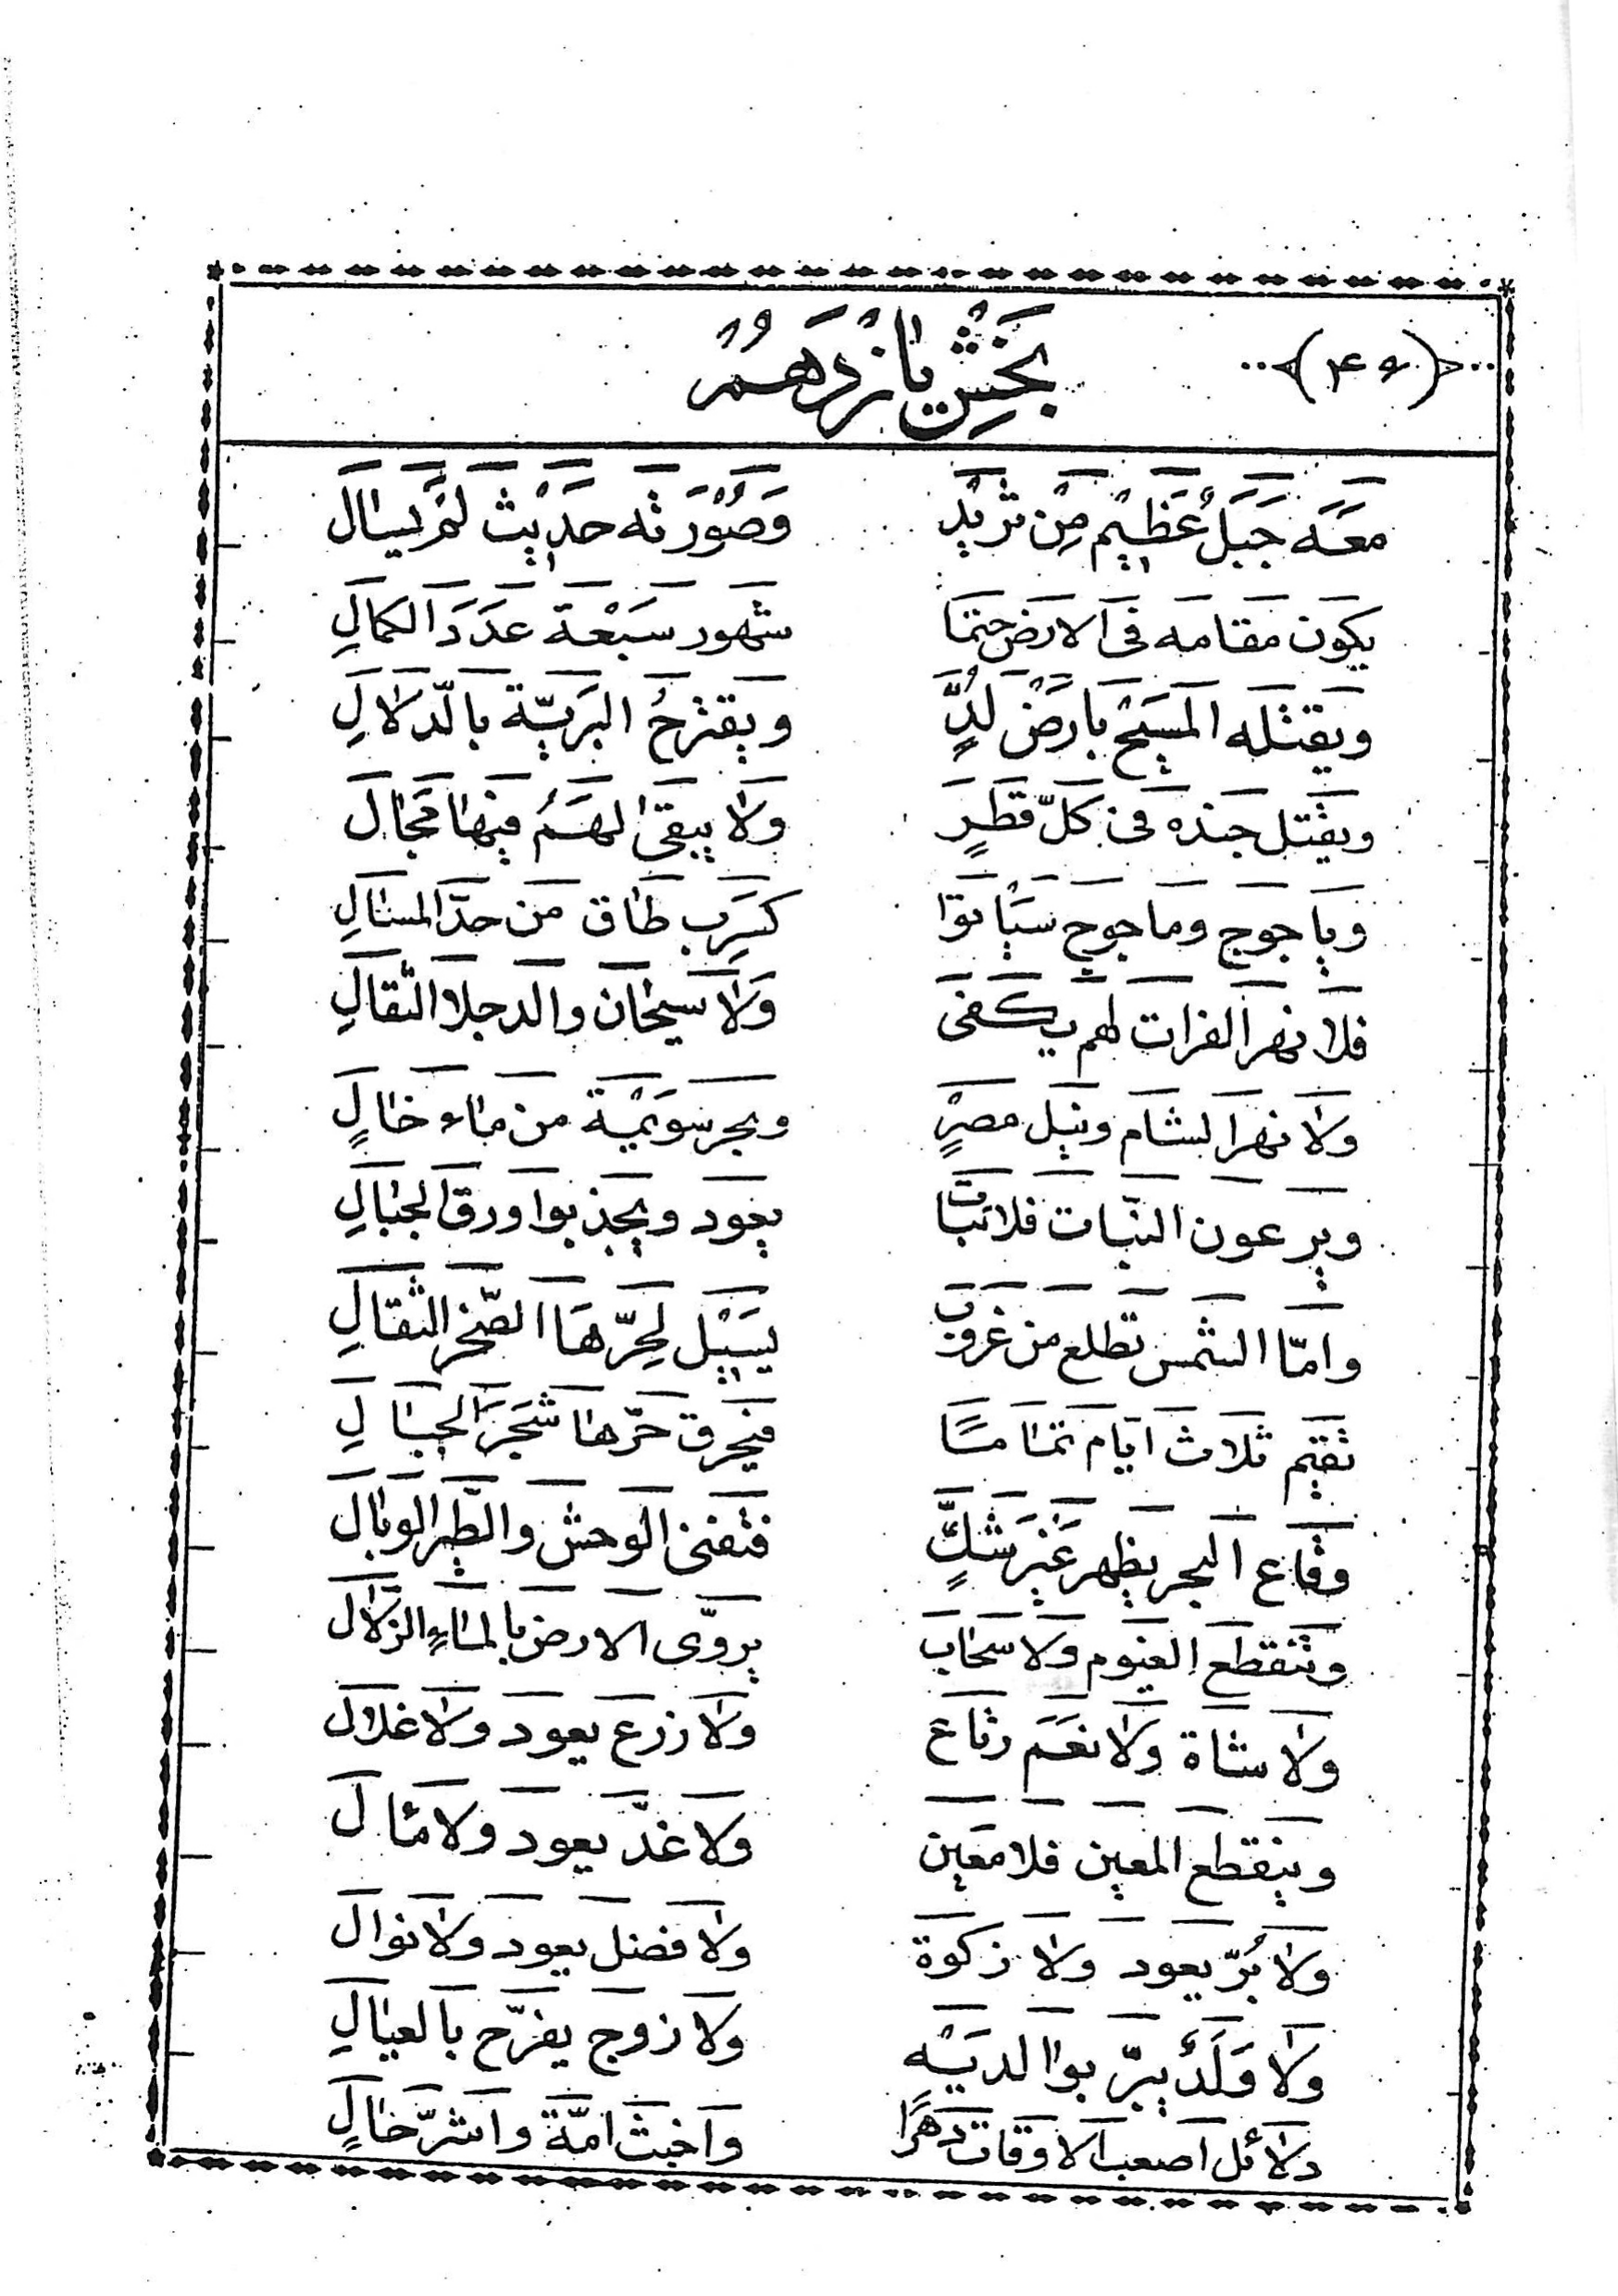 (۴۶)
بَخْشِ یٰانْزْدَهُمْ
معَه جَبَلٌ عَظيٖم مِن ثريٖدٍ وَصُوْرَته حَديٖث لَم يسٰال
يكون مقامه فى الارض حتمًا شهور سَبْعة عَدَدَ الكمالِ
ويقتله المَسيٖح بارَضْ لُدٍّ ويقترحُ البَريّة بالّدلالِ
ويقتل جنده فى كلّ قطرٍ ولا يبقىٰ لهَمُ فيها مَجٰال
وياجوج وماجوج سَيَاتوٰا كسَرب طٰاق من حدّ المسٰالِ
فلا نهر الفرات لهم يكفى وَلا سيحٰان والدجلا الثقالِ
ولا نهر الشام ونيل مصرٍ وبحر سويْمة من ماء خٰالٍ
ويرعون النّبات فلا نبات يعود ويجذبوا ورق الجبٰالِ
وامّا الشمس تطلع من غروب يسيٖل لحرّهَا الصّخر الثقالِ
تقيم ثلاث ايّام تمٰامًا فيحرق حَرّهٰا شَجَر الجبٰالِ
وقاع البحر يظهر غَيْر شَكٍّ فتفنى الوحش والطّير الوبٰال
وتنقطع الغيوم ولا سَحٰاب يروّى الارض بالماءِ الزّلال
ولا شاة ولا نعَم رتاع ولا زرع يعود ولا غلال
وينقطع المعين فلا معَين ولا غدّ يعود ولا مٰال
ولا بُرّ يعود ولا زكوة ولا فضل يعود ولا نوال
ولا وَلَدٌ يبرّ بوٰالديَْه ولا زوج يفرّح بالعيٰالِ
دلائل اصعب الاوقات دَهرًا واخبث امّة واشرّ خٰالٍ